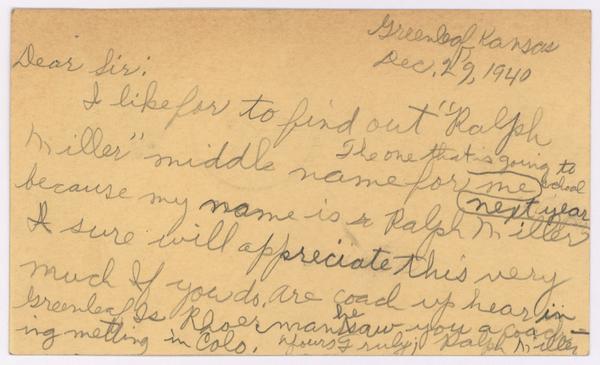 Greenleaf, Kansas
Dec. 29, 1940
Dear Sir:
I like for to find out "Ralph
Miller" middle name for me
The one that is going to
school
next year
because my name is a Ralph Miller
I sure will appreciate this very
much If you do. Are coach up hear in
Greenleaf Is man he saw you a coach-
ing metting in Colo. Yours Truly; Ralph Miller